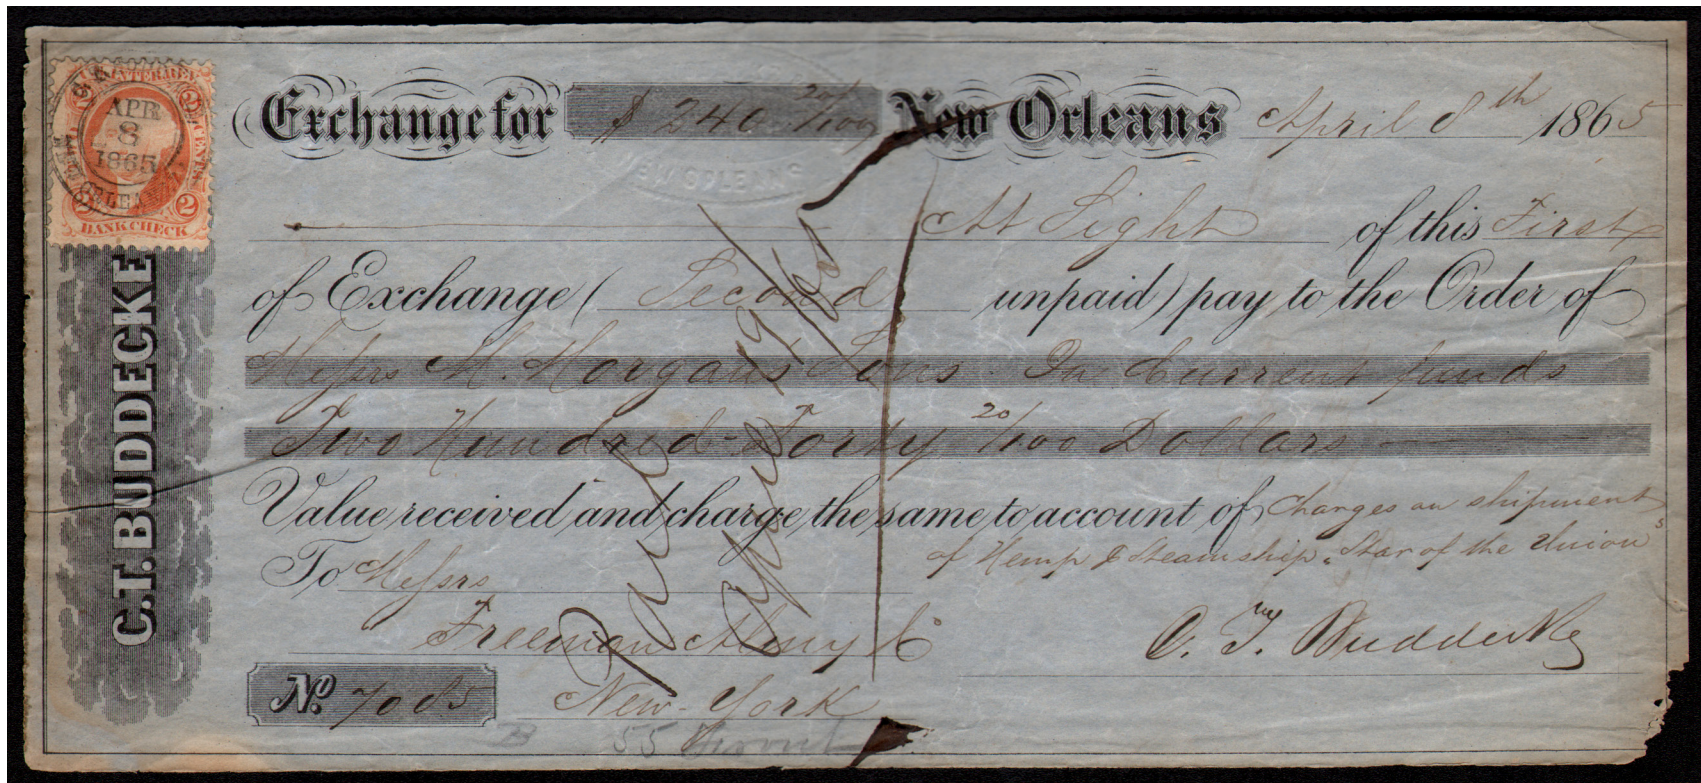 U.S. INTER. REV.
2 CENTS
APR
8
1865
NEW ORLEANS
2
BANK CHECK
C.T. BUDDECKE
Exchange for $ 240 20/100 New Orleans April 8th 1865
NEW ORLEANS
At Sight of this First
of Exchange ( Second unpaid ) pay to the Order of
Messrs M. Morgans Sons In Current funds
Two Hundred Forty 20/100 Dollars
Value received and charge the same to account of Charges on shipment
of Hemp p Steamship "Star of the Union"
To Messrs
Freeman Almy & Co
C. T. Buddecke
No. 7085 New-York
55
Paid
April 19/65